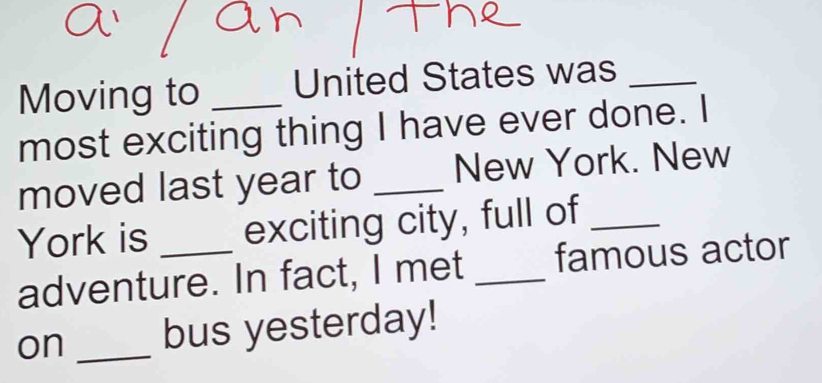 a / an / the
Moving to ____ United States was ____
most exciting thing I have ever done. I
moved last year to ____ New York. New
York is ____ exciting city, full of ____
adventure. In fact, I met ____ famous actor
on ____ bus yesterday!